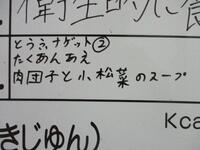 衛生的に
とうふナゲット②
たくあんあえ
肉団子と小松菜のスープ
Kca
きじゅん)